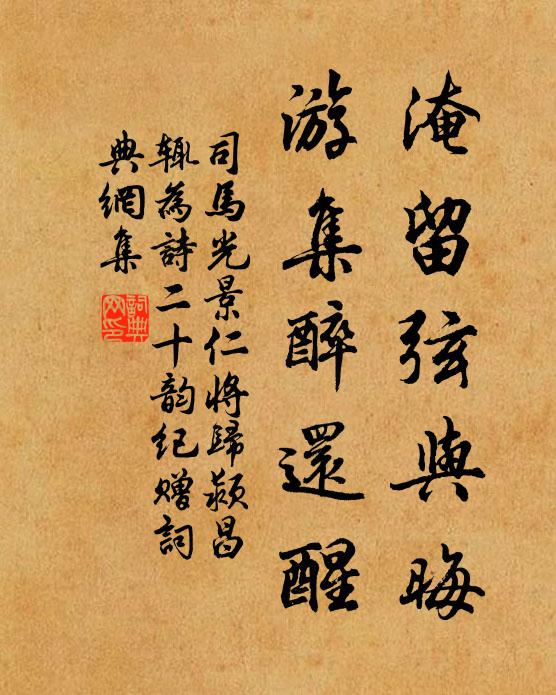 淹留弦與晦
游集醉還醒
司馬光景仁將歸潁昌
輒為詩二十韵紀贈詞
典網集
詞典网印